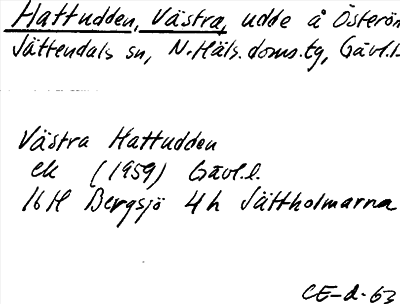 Hattudden, Västra, udde å Österön
Jättendals sn, N. Häls. doms. tg, Gävl. l.
Västra Hattudden
ek (1959) Gävl. l.
16H Bergsjö 4h Jättholmarna
CE-d-63